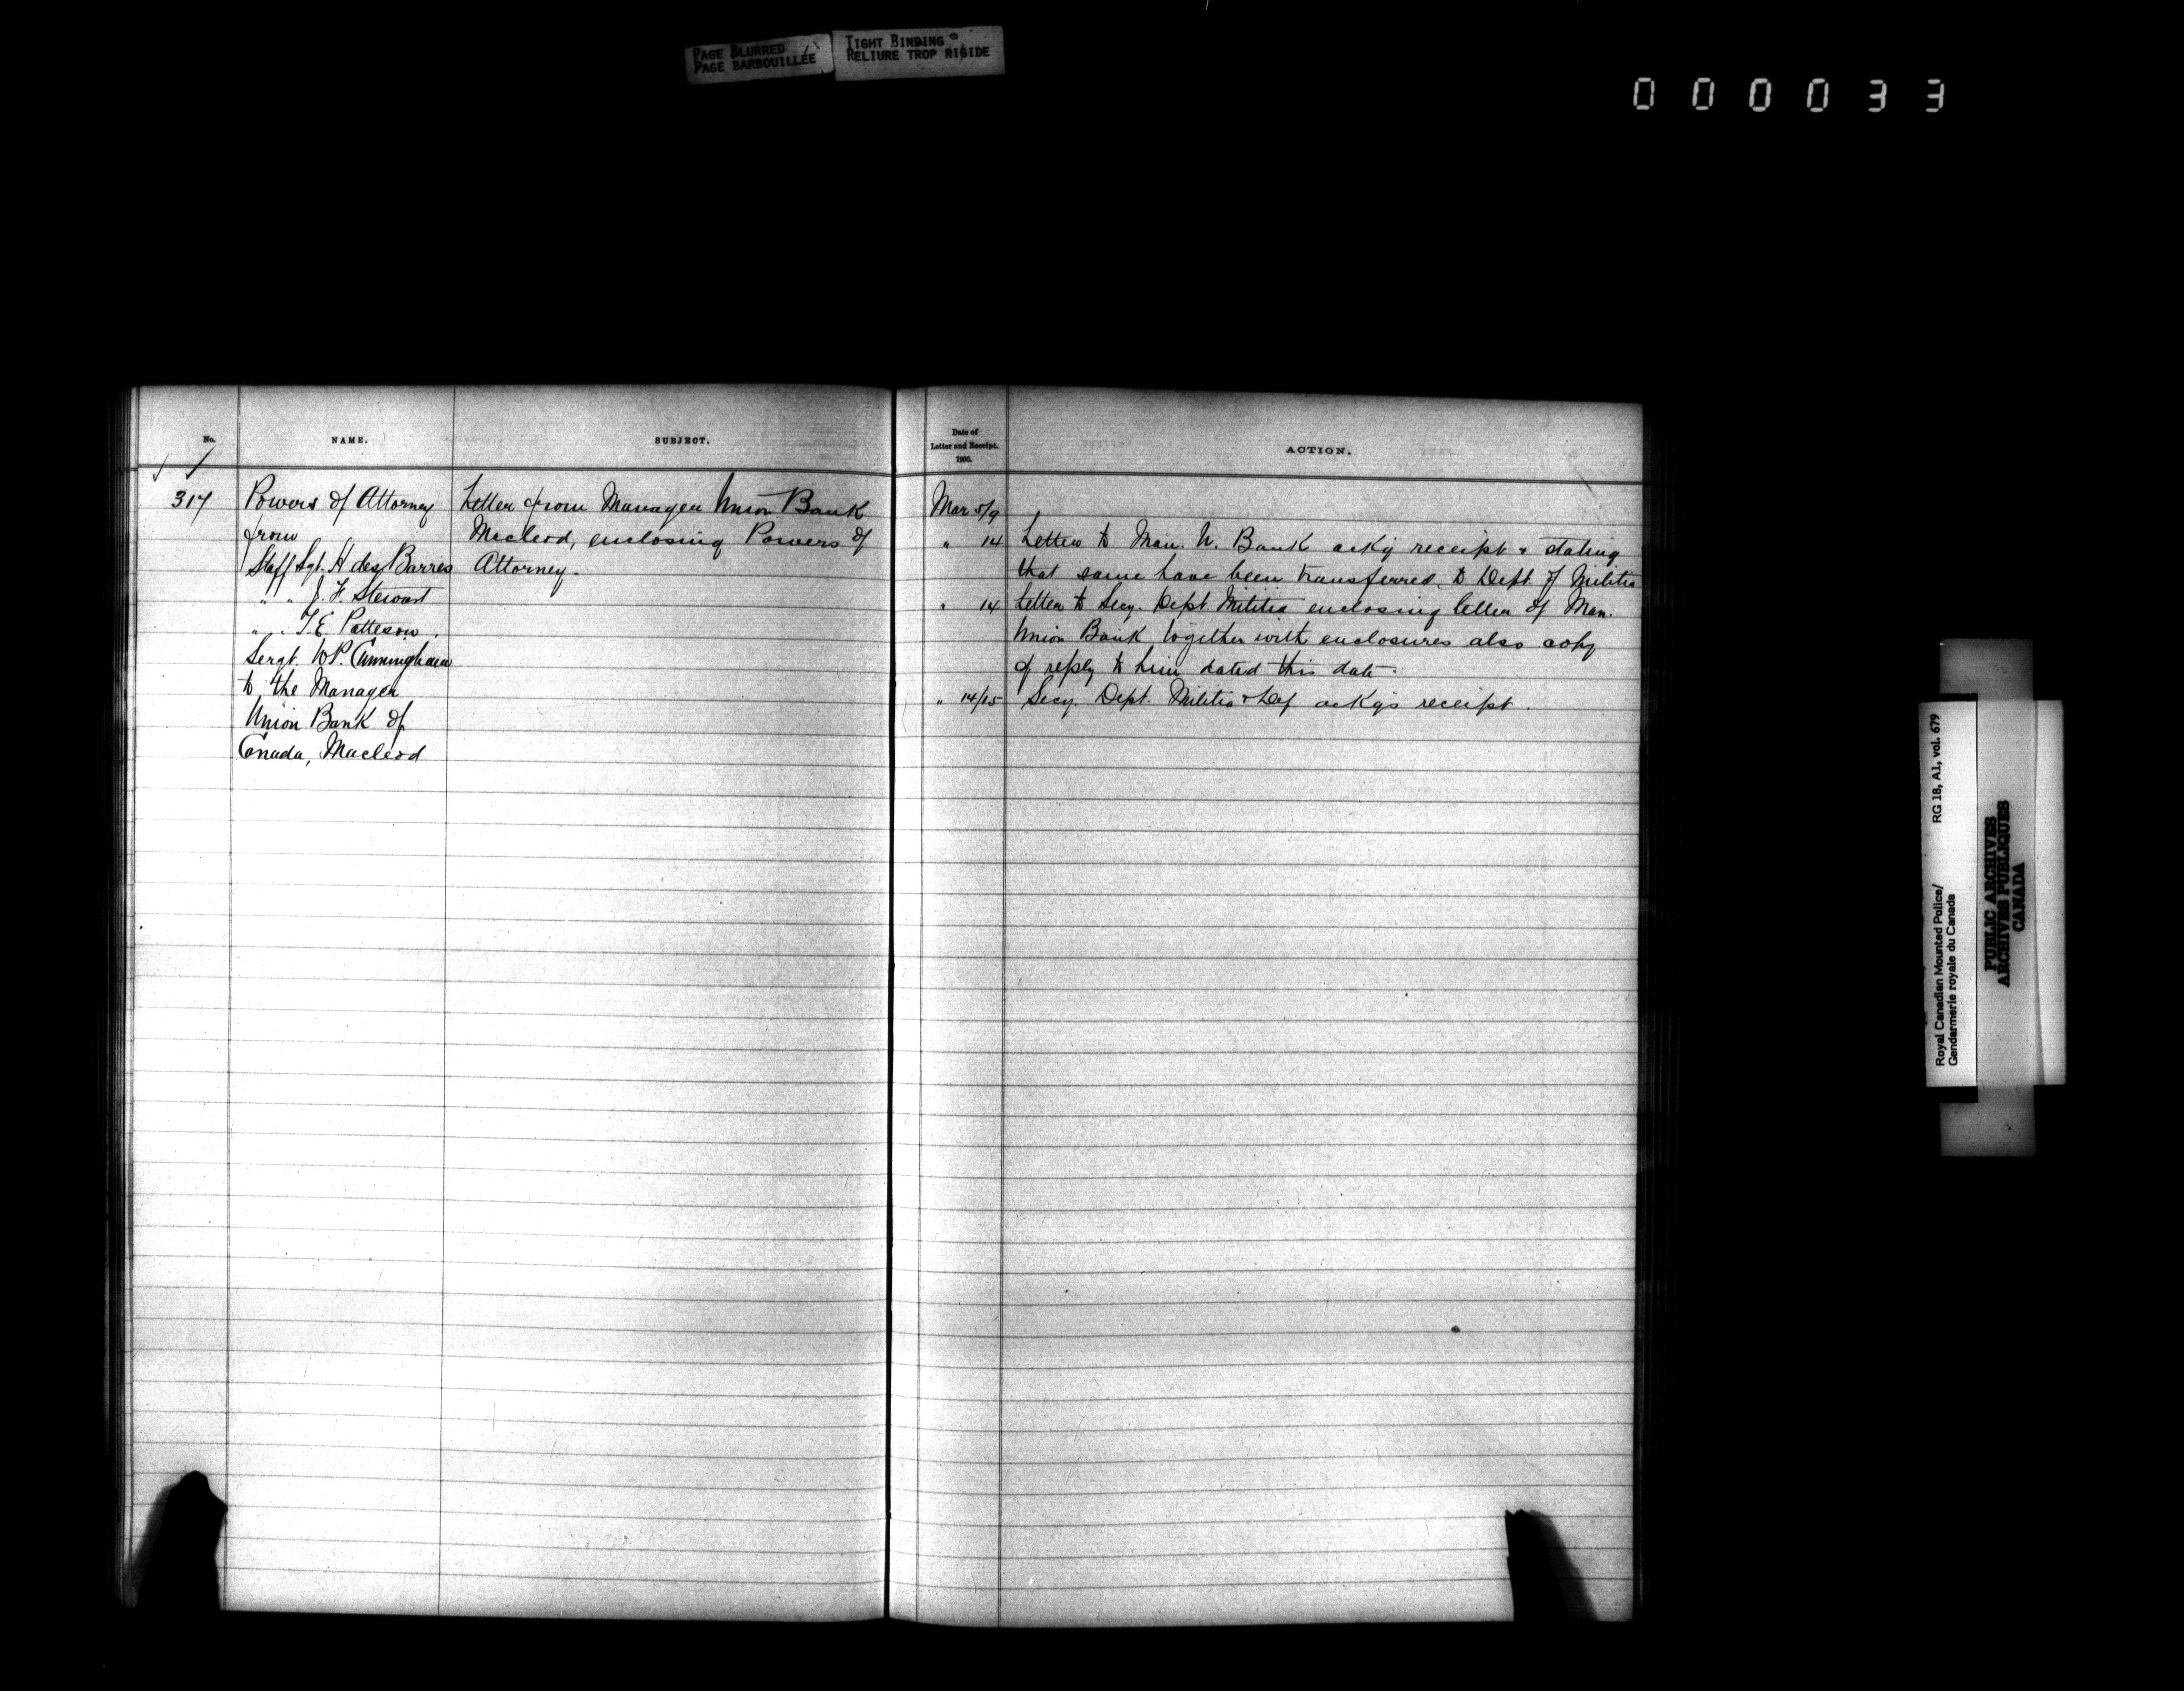 PAGE BLURRED
PAGE BARBOUILLÉE
TIGHT BINDING
RELIURE TROP RIGIDE
000033
No.
NAME.
SUBJECT.
317
Powers of Attorney
from
Staff Sgt. H des Barres
" " J. F. Stewart
" " T. E. Patteson.
Sergt. W P. Cunningham
to the Manager
Union Bank of
Canada, Macleod
Letter from Manager Union Bank
Macleod, enclosing Powers of
Attorney.
Date of
Letter and Receipt.
1900.
ACTION.
Mar 5/9
" 14 Letter to Man. U. Bank ackg receipt & stating
that same have been transferred to Dept. of Militia
" 14 Letter to Secy. Dept Militia enclosing letter of Man.
Union Bank together with enclosures also copy
of reply to him dated this date.
" 14/15 Secy. Dept. Militia & Def ackgs receipt.
Royal Canadian Mounted Police/
Gendarmerie royale du Canada
RG 18, A1, vol. 679
PUBLIC ARCHIVES
ARCHIVES PUBLIQUES
CANADA